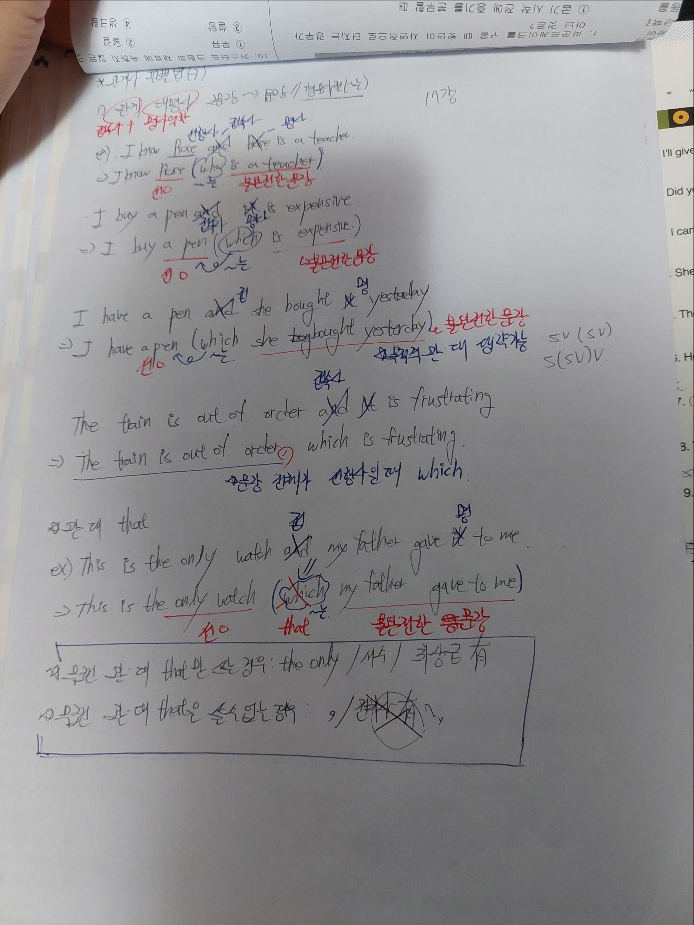 1) 관계 대명사
17강
접속사 + 명사역할
선행사 접속사 명사
ex). I know Rose and Rose is a teacher.
⇒ I know Rose (who is a teacher)
선O ~는 불완전한 문장
I buy a pen and it is expensive.
접속사 명사
⇒ I buy a pen (which is expensive.)
선O ~는 불완전한 문장
접 명
I have a pen and she bought it yesterday
⇒ I have a pen (which she bought yesterday) 불완전한 문장
선O ~는 목적격 관 대 생략가능
SV (SV)
S(SV)V
접속사
The train is out of order and it is frustrating
⇒ The train is out of order, which is frustrating.
문장 전체가 선행사일 때 which.
관 대 that
접 명
ex) This is the only watch and my father gave it to me.
⇒ This is the only watch (which my father gave to me)
~는
선O that 불완전한 문장
무조건 관·대 that만 쓰는 경우: the only / 서수 / 최상급 有
무조건 관·대 that을 쓸 수 없는 경우 : , / 전치사 有
I'll give
Did y
I can
She
Th
H
7.
3.
9.